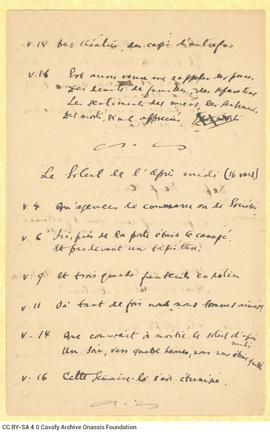 v. 14 Des théâtres, des cafés d'autrefois
v. 16 Est aussi venue me rappeler des peines
Les deuils de familles, des séparations
Les sentiments des miens, les
Des morts, si mal appréciés
Le Soleil de l'après midi (16 vers)
v 4 Qu'agences de commerce ou de Sociétés
v. 6 Ici, près de la porte était le canapé
et par devant un tapis turc
v. 9 et trois grands fauteuils en
v. 11 Où tant de fois nous nous sommes aimés
v. 14 Que couvrait à moitié le soleil d'après midi
Un soir, vers quatre heures, nous nous étions quittés
v. 16 Cette semaine-là s'est éternisée.
CC BY-SA 4.0 Cavafy Archive Onassis Foundation